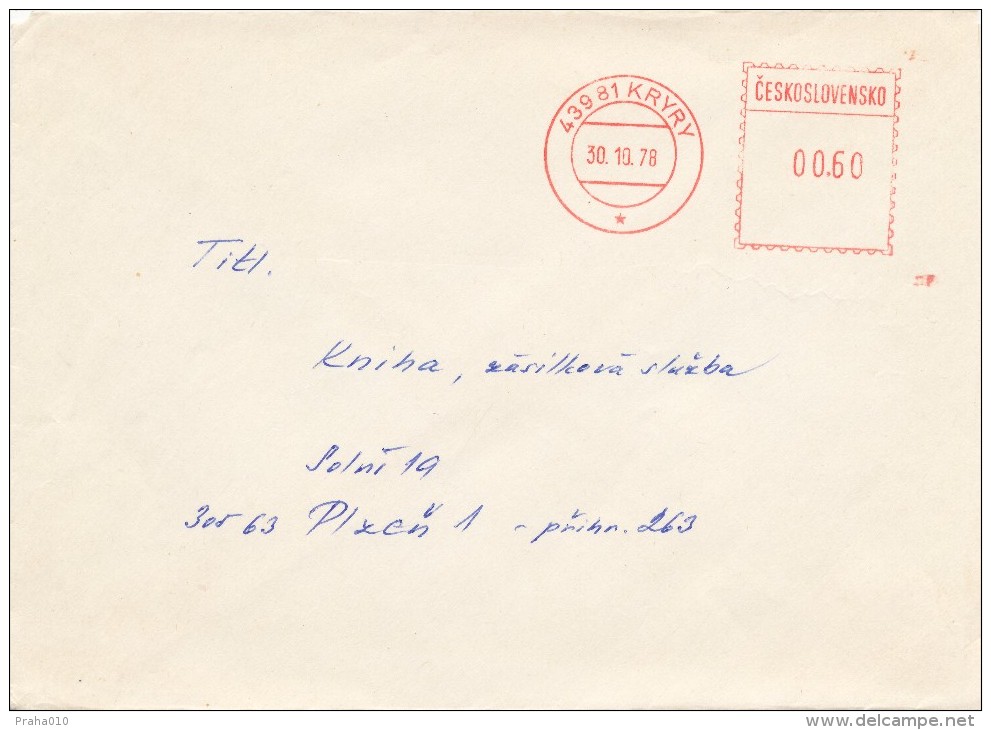 43981 KRYRY
30.10.78
ČESKOSLOVENSKO
00.60
Titl.
Kniha, zásilková služba
Solní 19
305 63 Plzeň 1 - přihr. 263
Praha010
www.delcampe.net